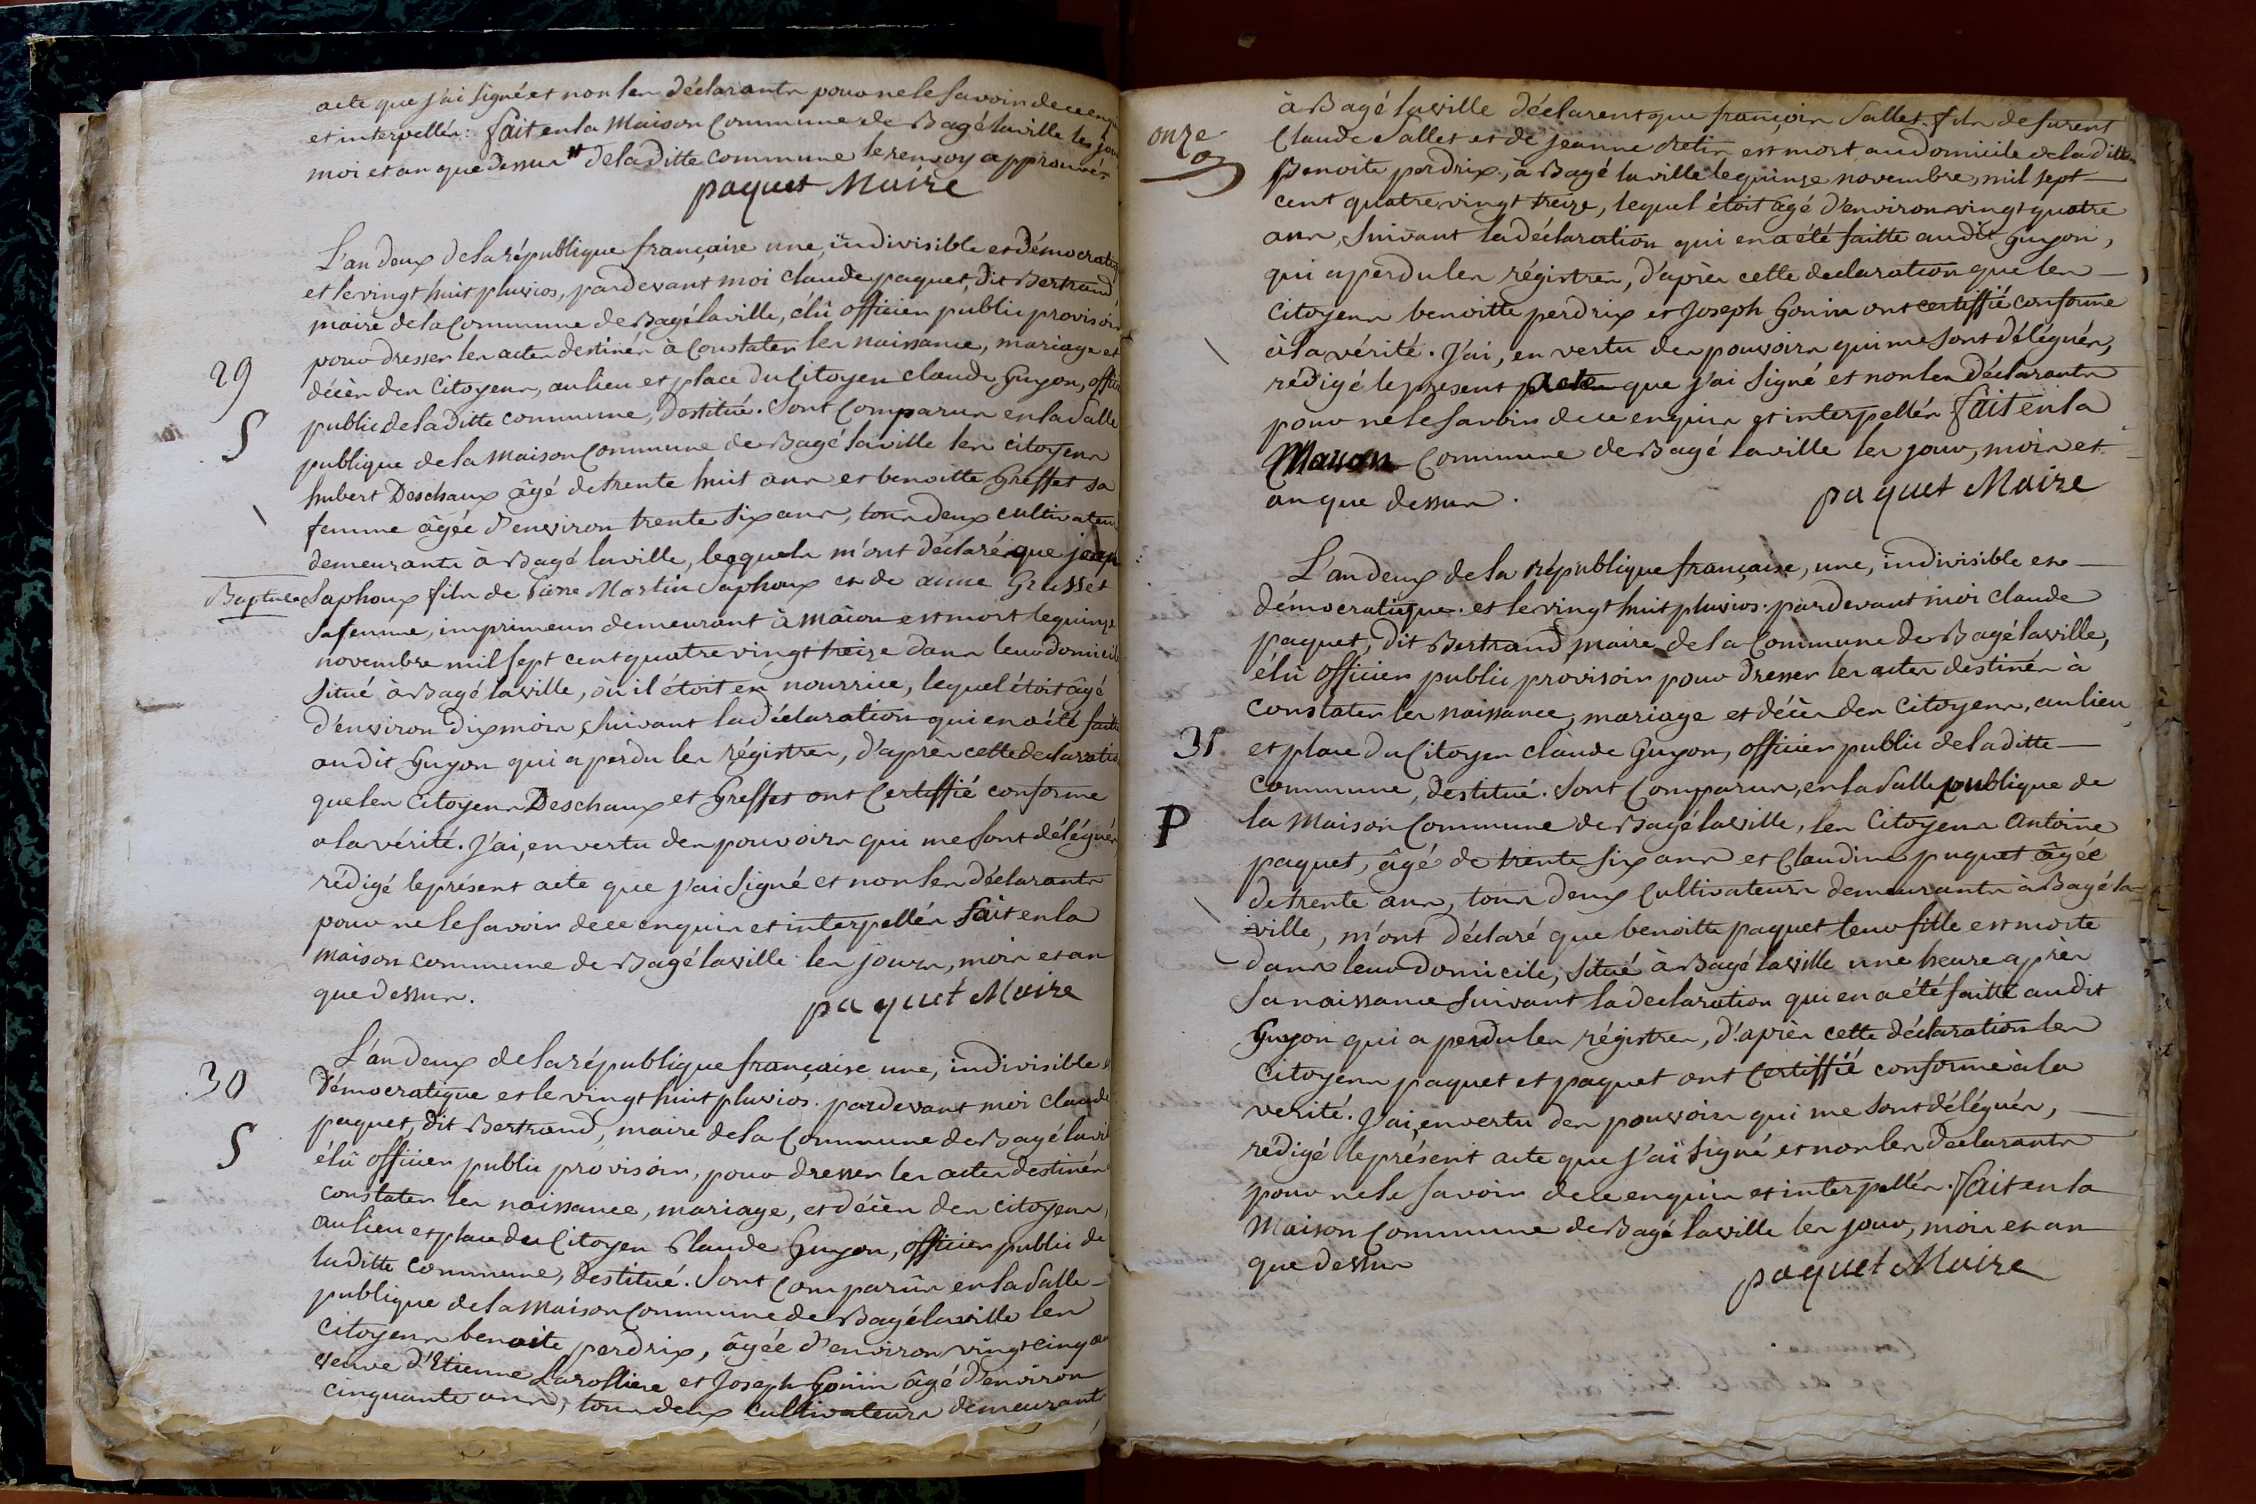 acte que j'ai signé et non les déclarants pour ne le savoir de ce enquis
et interpellés. fait en la Maison Commune de Bagé laville les jour
mois et an que dessus # de la ditte commune le renvoy approuvés
paquet Maire
L'an deux de la république française une, indivisible et Démocratique
et le vingt huit pluvios, pardevant moi claude paquet, dit Bertrand
maire de la Commune de Bagé laville, élû officier public provisoir
pour dresser les actes destinés à Constater les naissance, mariage et
29
décès des Citoyens, au lieu et place du Citoyen claude Guyon, officier
public de la ditte commune, destitué. Sont Comparus en la Salle
S
publique de la Maison Commune de Bagé laville les citoyens
hubert Deschaux âgé de trente huit ans et benoitte Greffet sa
femme âgée d'environ trente six ans, tous deux cultivateurs
demeurants à Bagé laville, lesquels m'ont déclaré que jean
Baptiste
Saphoux fils de Pierre Martin Saphoux et de anne Grusset
sa femme, imprimeur demeurant à Mâcon est mort le quinze
novembre mil sept cent quatre vingt treize dans leur domicile
situé à Bagé laville, où il étoit en nourrice, lequel étoit âgé
d'environ dix mois, suivant la déclaration qui en a été faitte
au dit Guyon qui a perdu les régistres, d'après cette declaration
que les Citoyens Deschaux et Greffet ont Certiffié conforme
a la vérité. J'ai, en vertu des pouvoirs qui me sont délégués
rédigé le présent acte que j'ai signé et non les déclarants
pour ne le savoir de ce enquis et interpellés fait en la
maison commune de Bagé laville les jours, mois et an
que dessus.
paquet Maire
L'an deux de la république française une, indivisible et
30
Démocratique et le vingt huit pluvios. pardevant moi claude
paquet, dit Bertrand, maire de la Commune de Bagé laville
S
élû officier public provisoir, pour dresser les actes destinés
constater les naissance, mariage, et décès des citoyens,
au lieu et place du Citoyen Claude Guyon, officier public de
la ditte commune, destitué. Sont Comparûs en la Salle
publique de la Maison Commune de Bagé laville les
citoyens benoite perdrix, âgée d'environ vingt cinq ans
veuve d'Etienne Larolliere et Joseph Gonin âgé d'environ
cinquante ans, tous deux cultivateurs demeurants
onze
à Bagé laville déclarent que françois Sallet fils de furent
Claude Sallet et de jeanne Retis est mort au domicile de la ditte
Benoite perdrix, à Bagé laville le quinze novembre, mil sept
cent quatre vingt treize, lequel étoit âgé d'environ vingt quatre
ans, suivant la déclaration qui en a été faitte au dit Guyon,
qui a perdu les régistres, d'après cette declaration que les
Citoyens benoitte perdrix et Joseph Gonin ont certiffié conforme
à la vérité. J'ai, en vertu des pouvoirs qui me sont délégués,
rédigé le present acte que j'ai signé et non les Déclarants
pour ne le savoir de ce enquis et interpellés fait en la
Maison Commune de Bagé laville les jour, mois et
an que dessus.
paquet Maire
L'an deux de la République française, une, indivisible et
démocratique. et le vingt huit pluvios. pardevant moi claude
paquet, dit Bertrand, maire de la Commune de Bagé laville,
élû officier public provisoir pour dresser les actes destinés à
constater les naissance, mariage et décès des Citoyens, au lieu
31
et place du Citoyen claude Guyon, officier public de la ditte
commune, destitué. Sont Comparus, en la Salle publique de
P
la Maison Commune de Bagé laville, les Citoyens Antoine
paquet, âgé de trente six ans et Claudine paquet âgée
de trente ans, tous deux Cultivateurs demeurants à Bagé la
ville, m'ont déclaré que benoitte paquet leur fille est morte
dans leur domicile, situé à Bagé laville une heure après
sa naissance suivant la declaration qui en a été faitte au dit
Guyon qui a perdu les régistres, d'après cette déclaration les
Citoyens paquet et paquet ont Certiffié conforme à la
verité. J'ai, en vertu des pouvoirs qui me sont délégués,
rédigé le présent acte que j'ai signé et non les déclarants
pour ne le savoir de ce enquis et interpellés. fait en la
Maison Commune de Bagé laville les jour, mois et an
que dessus
paquet Maire